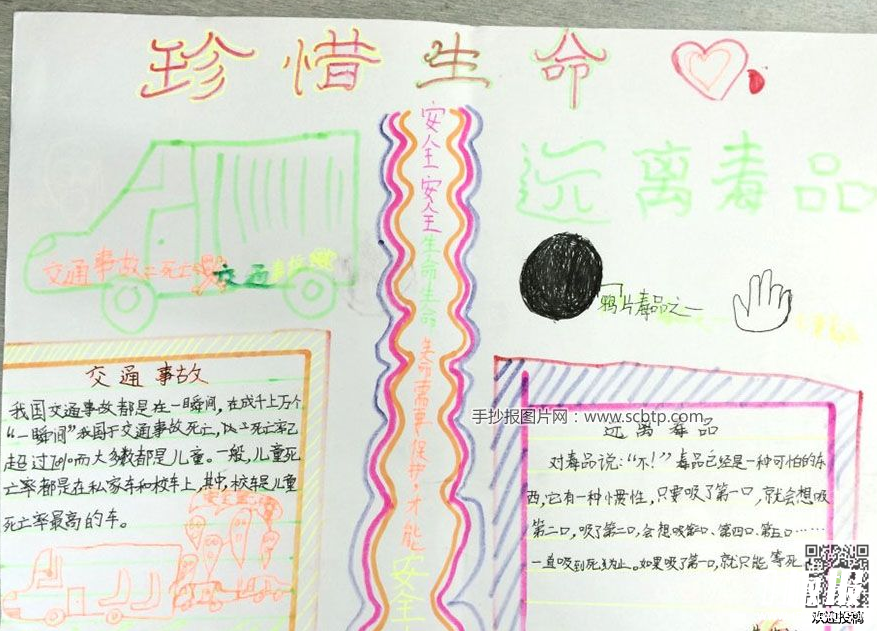 珍惜生命
远离毒品
安全安全生命生命生命需要保护,才能安全
交通事故=死亡
交通
鸦片毒品之一
手抄报图片网:www.scbtp.com
交通事故
我国交通事故都是在一瞬间,在成千上万个
“一瞬间”我国于交通事故死亡,
超过70%而大多数都是儿童。一般,儿童死
亡率都是在私家车和校车上,其中,校车是儿童
死亡率最高的车。
远离毒品
对毒品说:“不!”毒品已经是一种可怕的东
西,它有一种惯性,只要吸了第一口,就会想吸
第二口,吸了第二口,会想吸第三口、第四口、第五口……
一直吸到死为止。如果吸了第一口,就只能等死
欢迎投稿